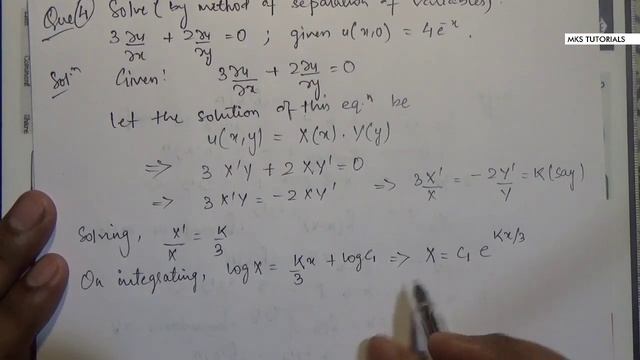 Que(4) Solve (by method of separation of variables).
3 ∂u/∂x + 2 ∂u/∂y = 0 ; given u(x,0) = 4e^-x.
MKS TUTORIALS
Solⁿ Given: 3 ∂u/∂x + 2 ∂u/∂y = 0
Let the solution of this eqⁿ be
u(x,y) = X(x). Y(y)
=> 3 X'Y + 2 XY' = 0
=> 3 X'Y = -2 XY' => 3X'/X = -2Y'/Y = K (say)
Solving, X'/X = K/3
On integrating, log X = Kx/3 + log C₁ => X = C₁ e^Kx/3